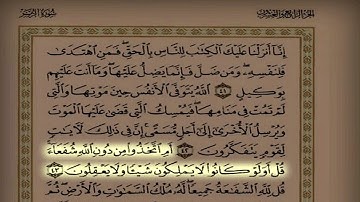 سورة الزمر
الجزء الرابع والعشرون
إِنَّا أَنزَلْنَا عَلَيْكَ الْكِتَٰبَ لِلنَّاسِ بِالْحَقِّ فَمَنِ اهْتَدَىٰ
فَلِنَفْسِهِ وَمَن ضَلَّ فَإِنَّمَا يَضِلُّ عَلَيْهَا وَمَا أَنتَ عَلَيْهِم
بِوَكِيلٍ ٤١ اللَّهُ يَتَوَفَّى الْأَنفُسَ حِينَ مَوْتِهَا وَالَّتِي
لَمْ تَمُتْ فِي مَنَامِهَا فَيُمْسِكُ الَّتِي قَضَىٰ عَلَيْهَا الْمَوْتَ
وَيُرْسِلُ الْأُخْرَىٰ إِلَىٰ أَجَلٍ مُّسَمًّى إِنَّ فِي ذَٰلِكَ لَآيَٰتٍ
لِّقَوْمٍ يَتَفَكَّرُونَ ٤٢ أَمِ اتَّخَذُوا مِن دُونِ اللَّهِ شُفَعَاءَ
قُلْ أَوَلَوْ كَانُوا لَا يَمْلِكُونَ شَيْئًا وَلَا يَعْقِلُونَ ٤٣
قُل لِّلَّهِ الشَّفَٰعَةُ جَمِيعًا لَّهُ مُلْكُ السَّمَٰوَٰتِ وَالْأَرْضِ ثُمَّ